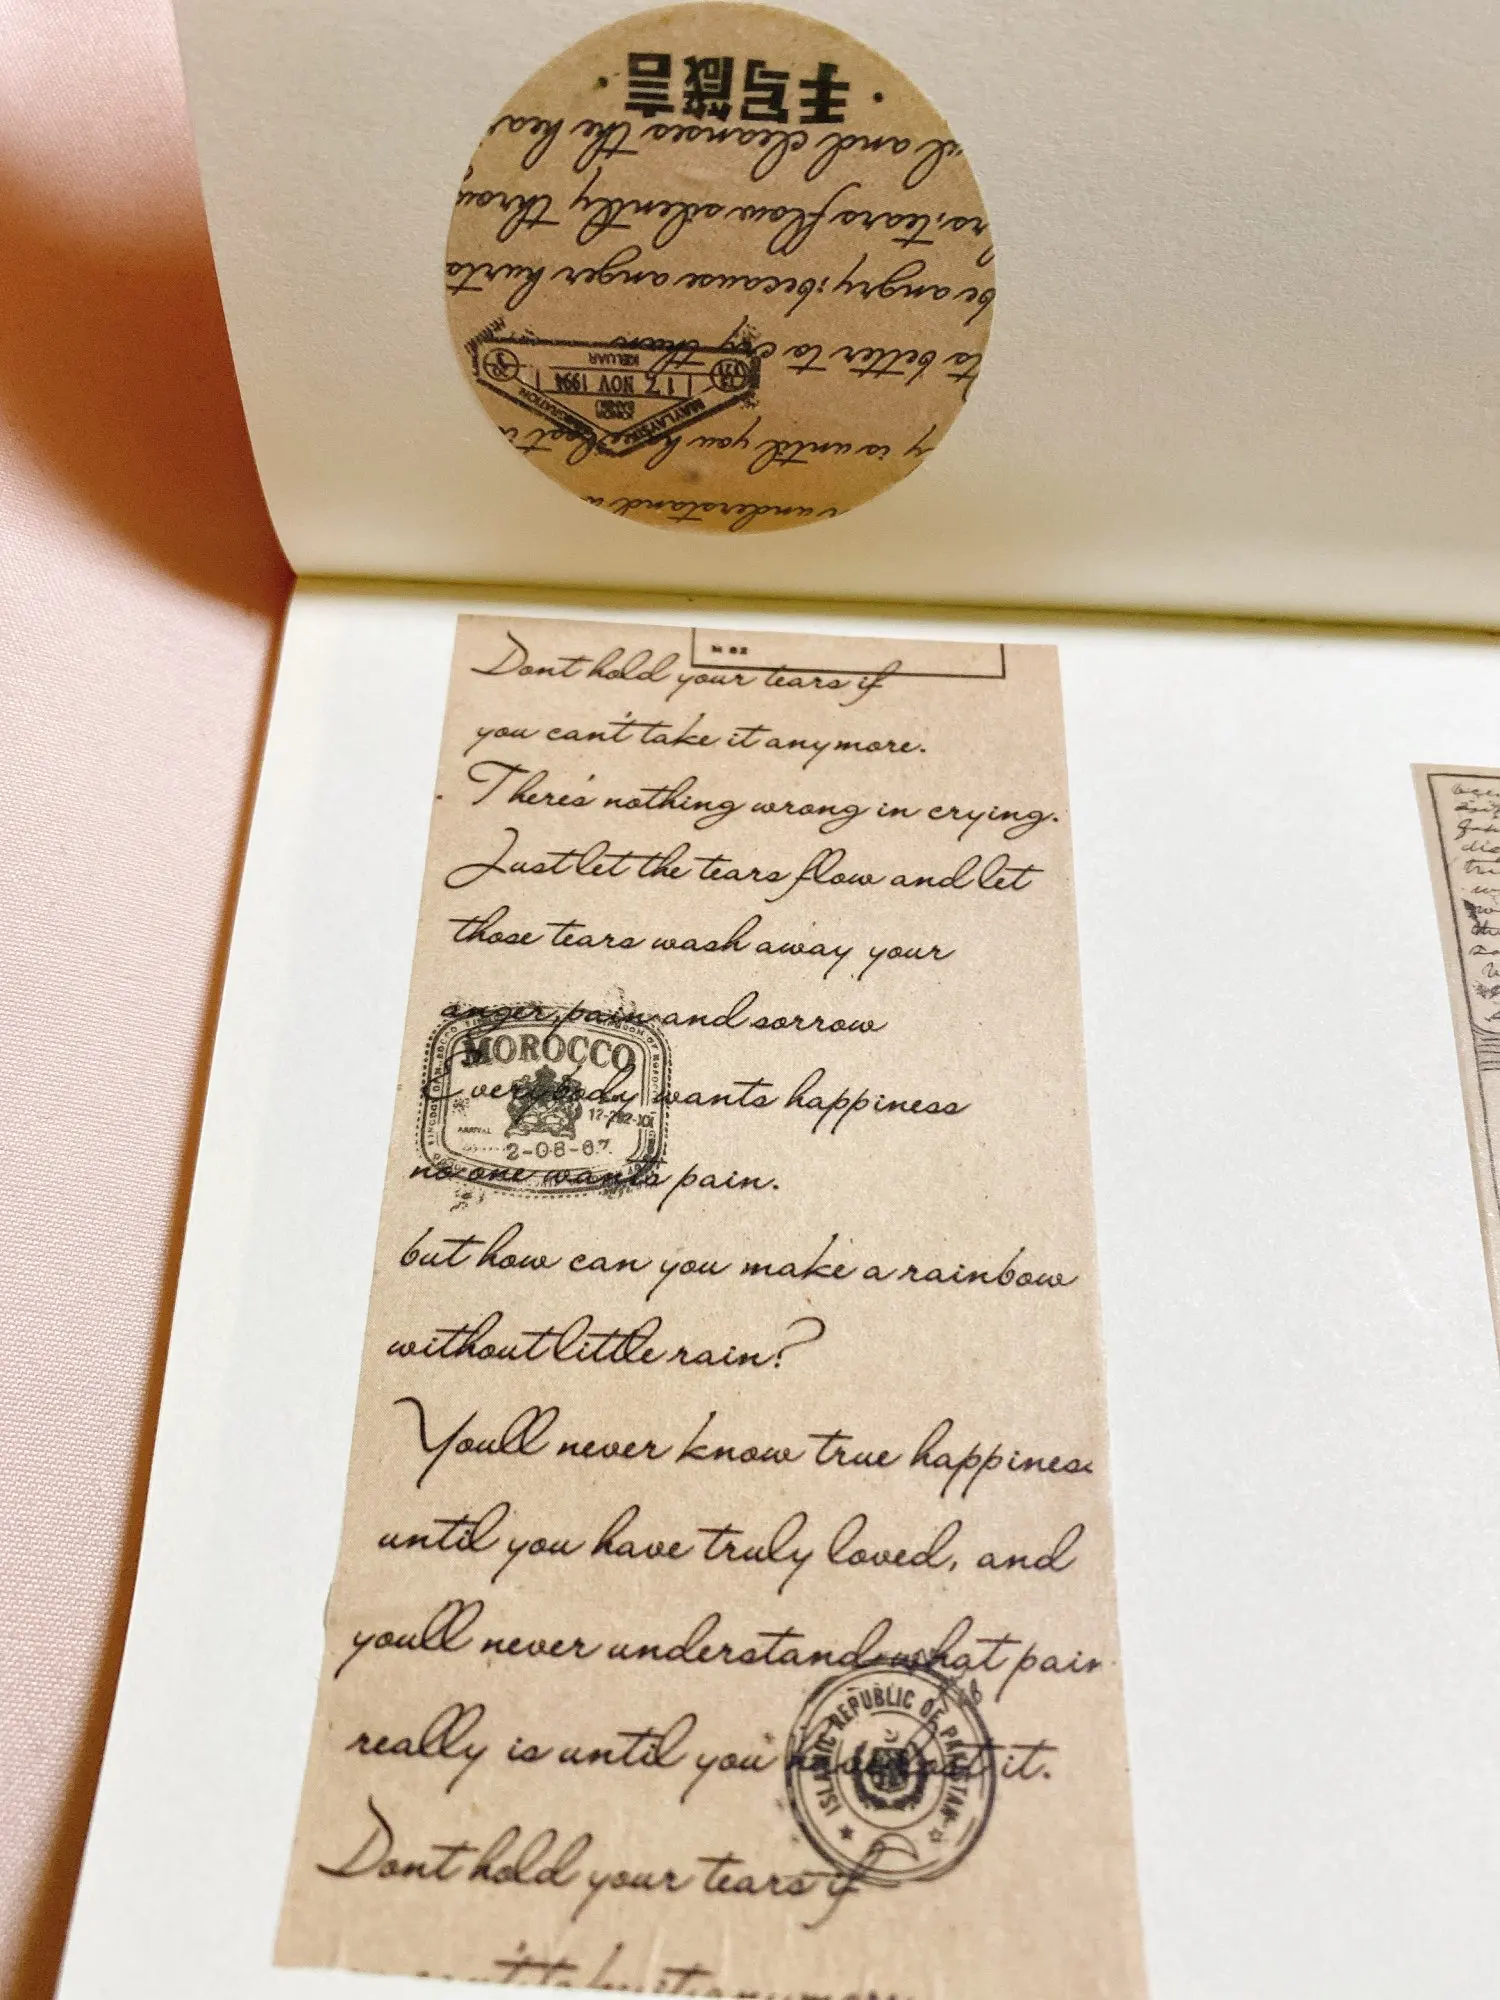 · 手写箴言 ·
and cleanses the
tears flow silently
be angry; because anger hurts
to better to cry than
KELUAR
17 NOV 1994
IMMIGRATION
y is until you have lost
understand
Dont hold your tears if
you can't take it anymore.
There's nothing wrong in crying.
Just let the tears flow and let
those tears wash away your
anger, pain and sorrow
MOROCCO
Everybody wants happiness
ARRIVAL
2-08-67
no one wants pain.
but how can you make a rainbow
without little rain?
Youll never know true happiness
until you have truly loved, and
youll never understand what pain
really is until you have lost it.
ISLAMIC REPUBLIC OF PAKISTAN
Dont hold your tears if